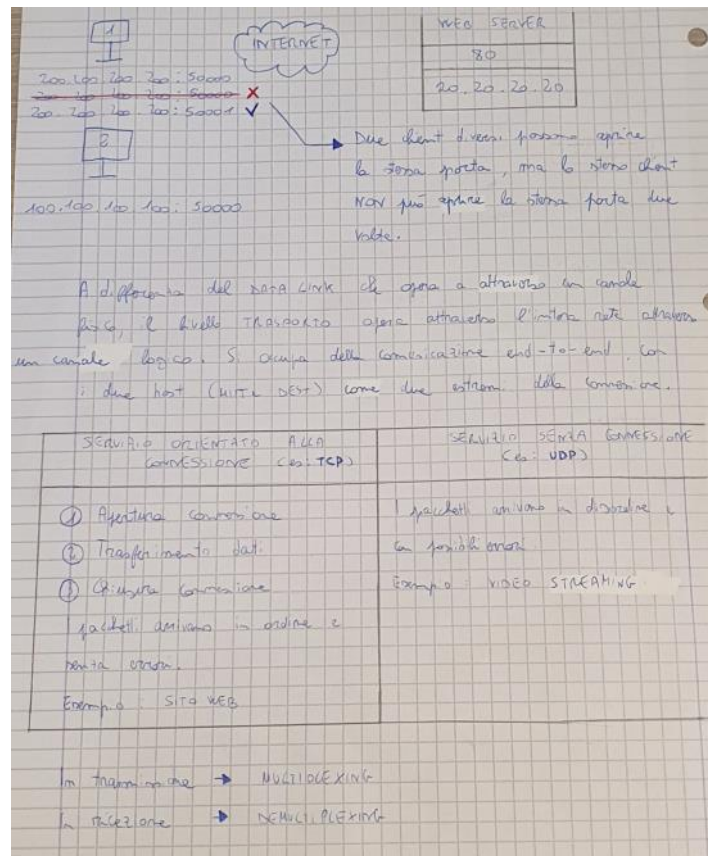 1
INTERNET
WEB SERVER
80
20.20.20.20
200.200.200.200:50000
200.200.200.200:50000 X
200.200.200.200:50001 ✓
2
100.100.100.100:50000
Due client diversi possono aprire
la stessa porta, ma lo stesso client
NON può aprire la stessa porta due
volte.
A differenza del DATA LINK che opera a attraverso un canale
fisico, il livello TRASPORTO opera attraverso l'intera rete attraverso
un canale logico. Si occupa della comunicazione end-to-end, con
i due host (MITT e DEST) come due estremi della connessione.
SERVIZIO ORIENTATO ALLA
CONNESSIONE (es: TCP)
① Apertura connessione
② Trasferimento dati
③ Chiusura connessione
I pacchetti arrivano in ordine e
senza errori.
Esempio: SITO WEB
SERVIZIO SENZA CONNESSIONE
(es: UDP)
I pacchetti arrivano in disordine e
con possibili errori
Esempio: VIDEO STREAMING
In trasmissione → MULTIPLEXING
In ricezione → DEMULTIPLEXING